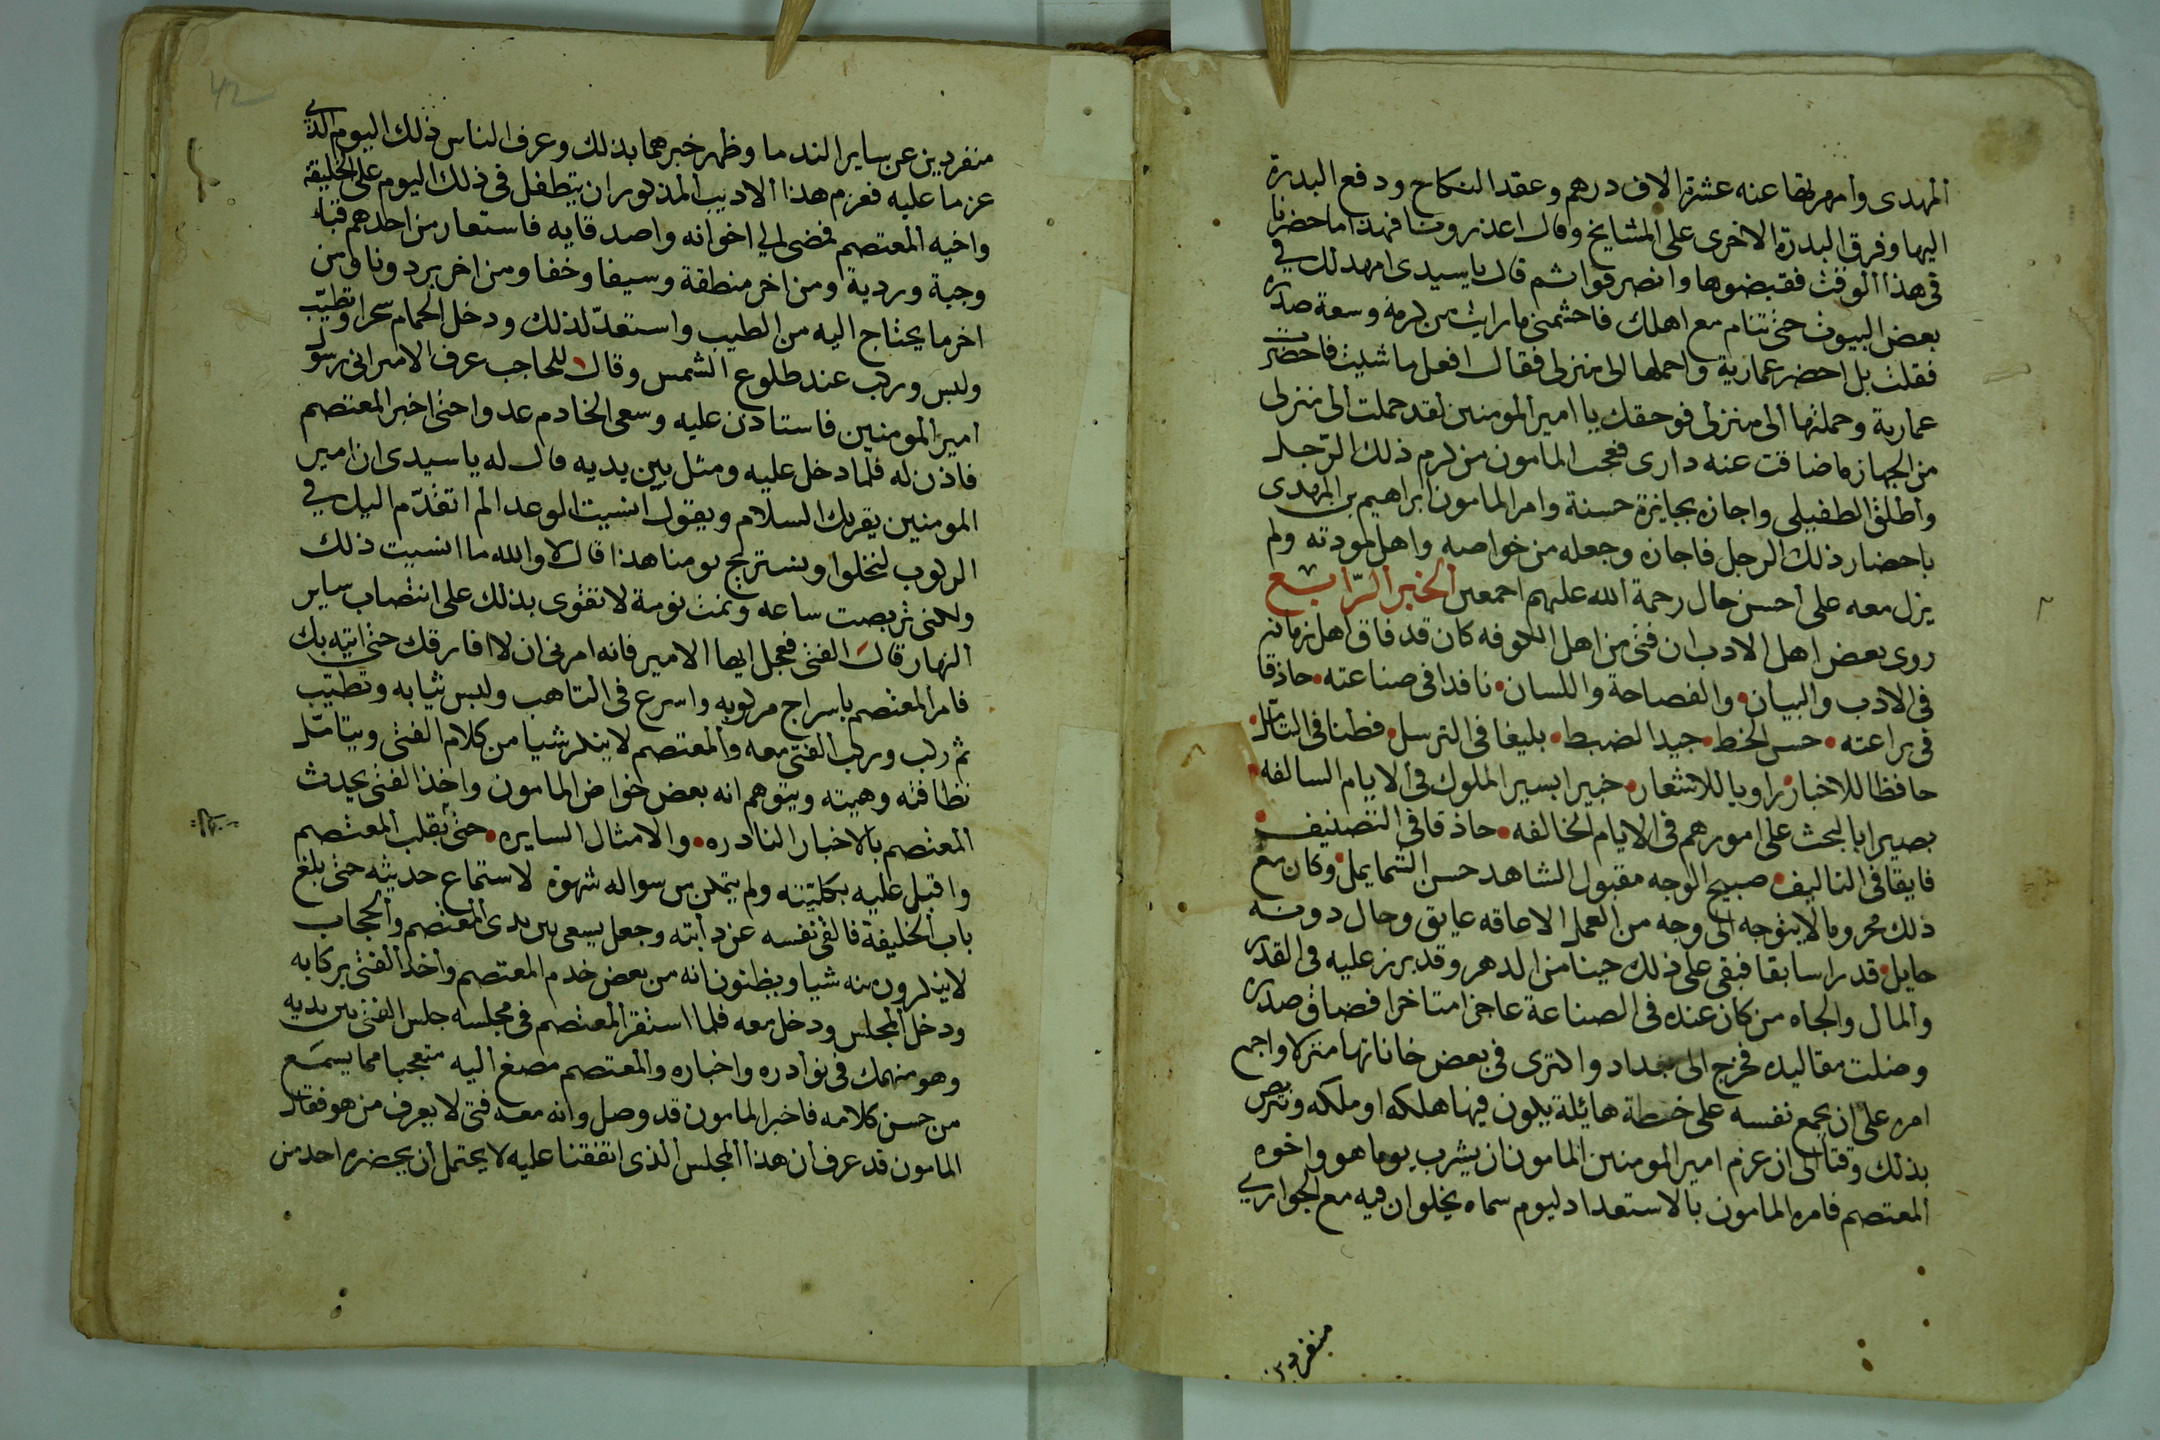 المهدى وأمهرتها عنه عشرة الاف درهم وعقد النكاح ودفع البدرة
اليها وفرق البدرة الاخرى على المشايخ وقال اعذرونا فهذا ما حضرنا
فى هذا الوقت فقبضوها وانصرفوا ثم قال يا سيدى امهد لك فى
بعض البيوت حتى تنام مع اهلك فاحشمنى ما رايت من كرمه وسعة صدره
فقلت بل احضر عمارية واحملها الى منزلى فقال افعل ما شيت فاحضرت
عمارية وحملتها الى منزلى فوحقك يا امير المومنين لقد حملت الى منزلى
من الجهاز ما ضاقت عنه دارى فعجب المامون من كرم ذلك الرّجل
وأطلق الطفيلى واجازه بجايزة حسنة وامر المامون ابراهيم بن المهدى
باحضار ذلك الرجل فاجازه وجعله من خواصه واهل مودته ولم
يزل معه على أحسن حال رحمة الله عليهم اجمعين الخبر الرّابع
روى بعض اهل الادب ان فتى من اهل الكوفه كان قد فاق اهل زمانه
فى الادب والبيان والفصاحة واللسان نافدا فى صناعته حاذقا
فى براعته حسن الخط جيد الضبط بليغا فى الترسل فطنا فى التأمّل
حافظا للاخبار راويا للاشعار خبيرا بسير الملوك فى الايام السالفه
بصيرا بالبحث على امورهم فى الايام الخالفه حاذقا فى التصنيف
فايقا فى التاليف صبيح الوجه مقبول الشاهد حسن الشمايل وكان مع
ذلك محروما لا يتوجه الى وجه من العمل الا عاقه عايق وحال دونه
حايل قدرا سابقا فبقى على ذلك حينا من الدهر وقد برز عليه فى القدر
والمال والجاه من كان عنده فى الصناعة عاجزا متاخرا فضاق صدره
وضلت مقاليده فخرج الى بغداد واكترى فى بعض خاناتها منزلا واجمع
امره على ان يجمع نفسه على خطة هائلة يكون فيها هلكه او ملكه وتربص
بذلك وقتا الى ان عزم امير المومنين المامون ان يشرب يوما هو واخوه
المعتصم فامره المامون بالاستعداد ليوم سماه يخلوان فيه مع الجوارى
منفردين
منفردين عن ساير الندما وظهر خبرهما بذلك وعرف الناس ذلك اليوم الذى
عزما عليه فعزم هذا الاديب المذكور ان يتطفل فى ذلك اليوم على الخليفة
واخيه المعتصم فمضى الى اخوانه واصدقايه فاستعار من احدهم قباء
وجبة وردية ومن اخر منطقة وسيفا وخفا ومن اخر بردونا ومن
اخر ما يحتاج اليه من الطيب واستعدّ لذلك ودخل الحمام سحرا وتطيّب
ولبس وركب عند طلوع الشمس وقال للحاجب عرف الامير انى رسول
امير المومنين فاستاذن عليه وسعى الخادم عدوا حتى اخبر المعتصم
فاذن له فلما دخل عليه ومثل بين يديه قال له يا سيدى ان امير
المومنين يقريك السلام ويقول انسيت الموعد الم اتقدّم اليك فى
الركوب لنخلوا ونستريح يومنا هذا قال لا والله ما انسيت ذلك
ولكنى تربصت ساعه ونمت نومة لاتقوى بذلك على انتصاب ساير
النهار قال الفتى فعجل ايها الامير فانه امرنى ان لا افارقك حتى اتيه بك
فامر المعتصم باسراج مركوبه واسرع فى التاهب ولبس ثيابه وتطيّب
ثم ركب وركب الفتى معه والمعتصم لا ينكر شيا من كلام الفتى ويتامّل
نظافته وهيته ويتوهم انه بعض خواص المامون واخذ الفتى يحدث
المعتصم بالاخبار النادره والامثال السايره حتى بقلب المعتصم
واقبل عليه بكليّته ولم يتمكن من سواله شهوة لاستماع حديثه حتى بلغ
باب الخليفة فالقى نفسه عن دابته وجعل يسعى بين يدى المعتصم والحجاب
لا ينكرون منه شيا ويظنون انه من بعض خدم المعتصم وأخذ الفتى بركابه
ودخل المجلس ودخل معه فلما استقر المعتصم فى مجلسه جلس الفتى بين يديه
وهو منهمك فى نوادره واخباره والمعتصم مصغ اليه متعجبا مما يسمع
من حسن كلامه فاخبر المامون قد وصل وانه معه فتى لا يعرف من هو فقال
المامون قد عرف ان هذا المجلس الذى اتفقنا عليه لا يحتمل أن يحضره احد من